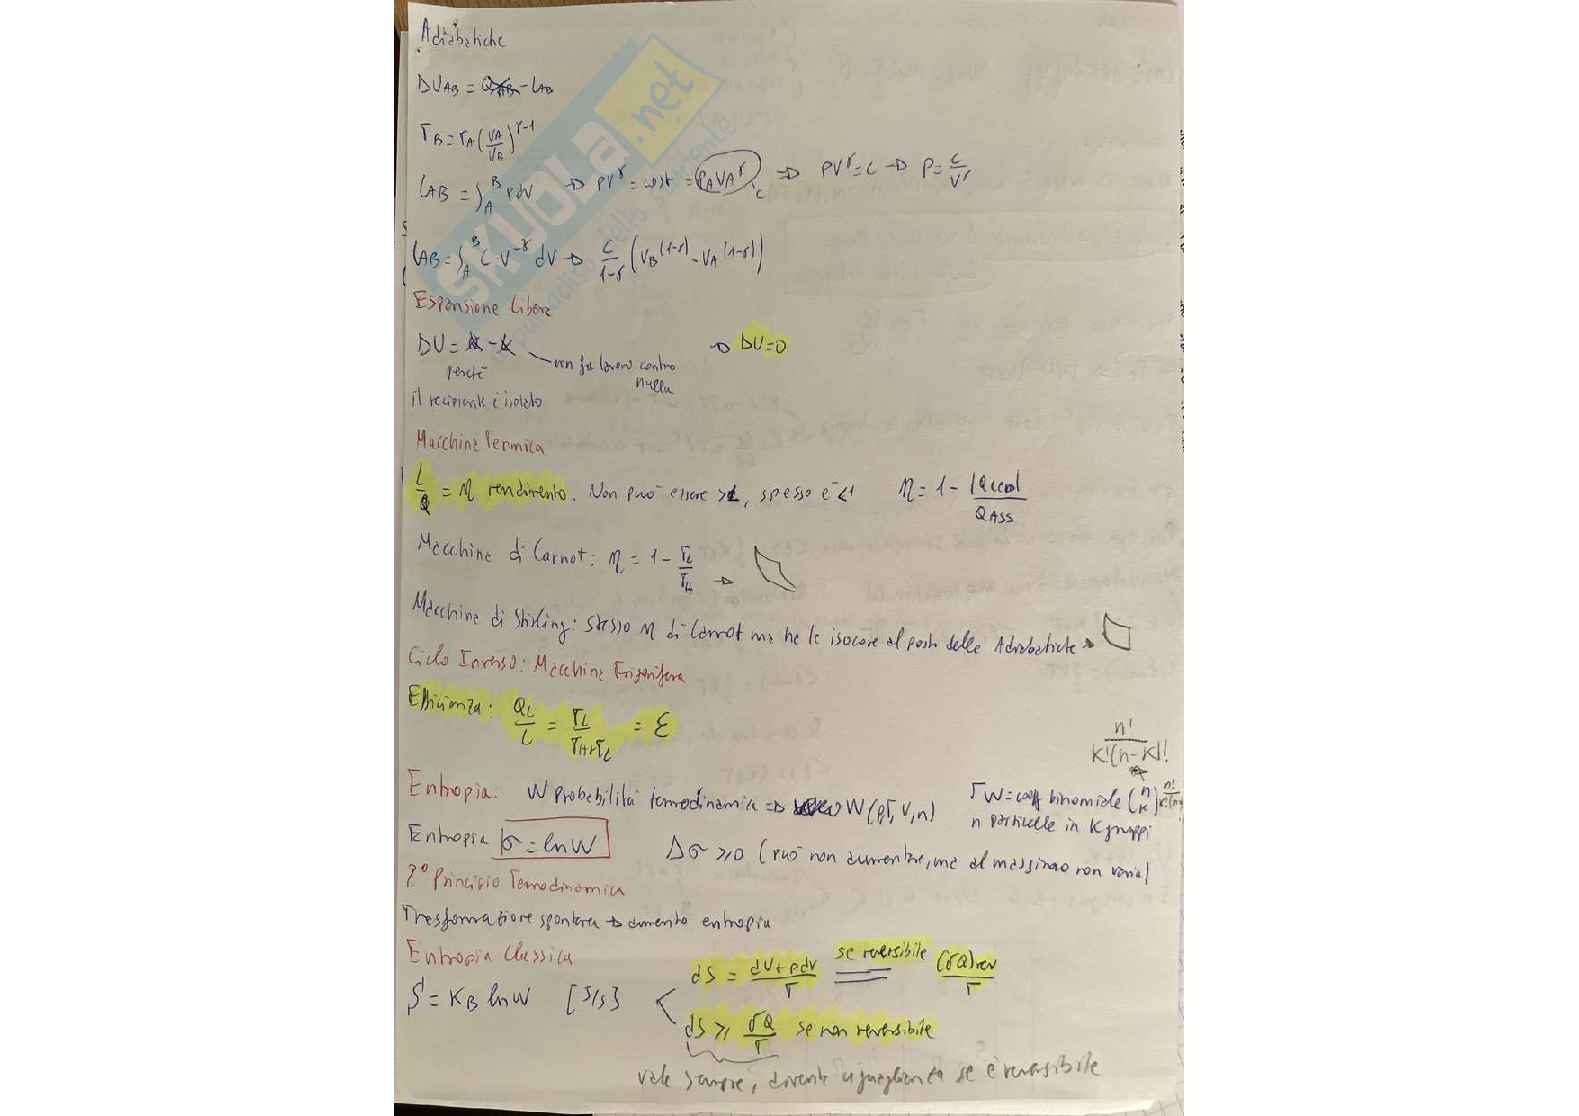 Adiabatiche
SKUOLA.net
ΔU_AB = Q_AB - L_AB
T_B = T_A (V_A/V_B)^γ-1
L_AB = ∫_A^B pdV → PV^γ = cost = P_A V_A^γ c → PV^γ = c → P = c/V^γ
L_AB = ∫_A^B c V^-γ dV → c/1-γ (V_B^(1-γ) - V_A^(1-γ))
Espansione Libera
ΔU = Q - L non fa lavoro contro nulla → ΔU = 0
perché
il recipiente è isolato
Macchina Termica
L/Q = η rendimento. Non può essere >1, spesso è <1 η = 1 - |Qced|/QASS
Macchina di Carnot: η = 1 - T_L/T_H →
Macchina di Stirling: stesso η di Carnot ma ha le isocore al posto delle Adiabatiche →
Ciclo Inverso: Macchina Frigorifera
Efficienza: Q_L/L = T_L/T_H-T_L = ε
n!/K!(n-K)!
Entropia: W Probabilità termodinamica → W(p,T,V,n)
W = coeff binomiale (n K)
n particelle in K gruppi
Entropia σ = lnW Δσ ≥ 0 (può non aumentare, ma al massimo non varia)
2° Principio Termodinamica
Trasformazione spontanea → aumento entropia
Entropia Classica
S = K_B lnW [J/s]
dS = dU+pdV/T se reversibile (δQ)rev/T
dS ≥ δQ/T se non reversibile
vale sempre, diventa uguaglianza se è reversibile